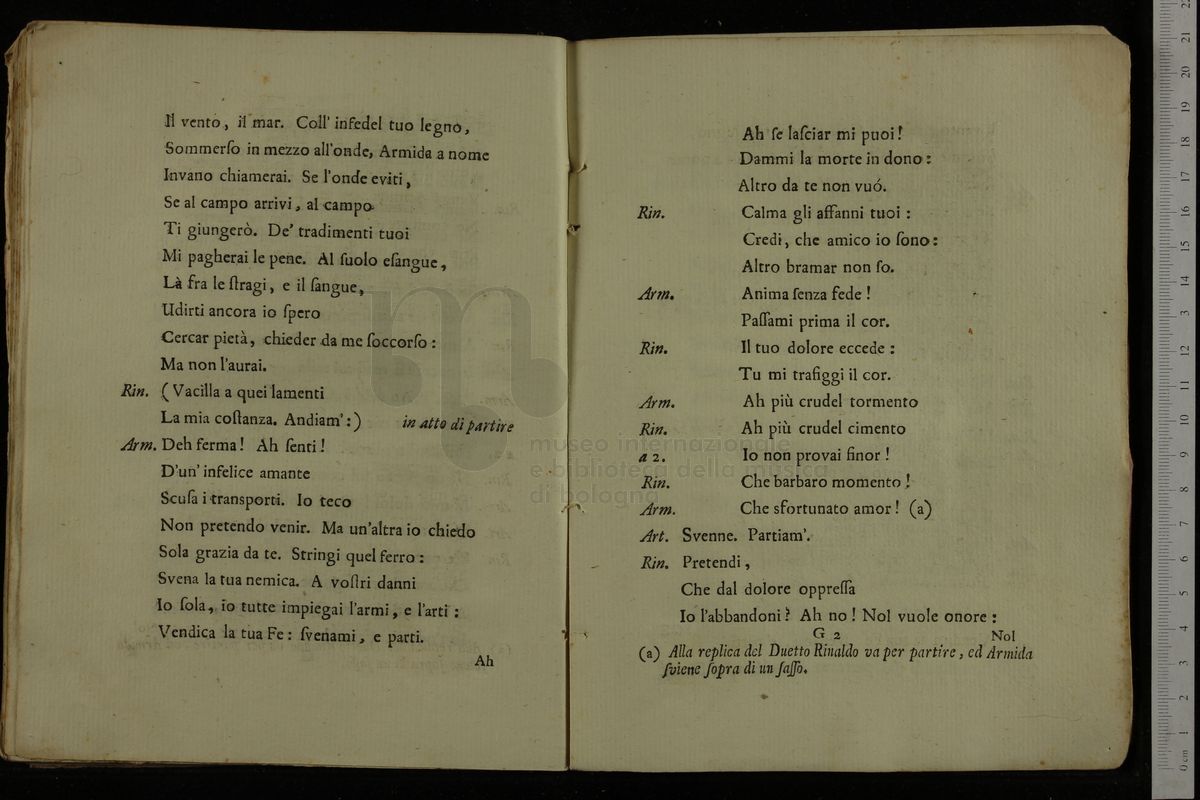 Il vento, il mar. Coll' infedel tuo legno,
Sommerſo in mezzo all'onde, Armida a nome
Invano chiamerai. Se l'onde eviti,
Se al campo arrivi, al campo
Ti giungerò. De' tradimenti tuoi
Mi pagherai le pene. Al ſuolo eſangue,
Là fra le ſtragi, e il ſangue,
Udirti ancora io ſpero
Cercar pietà, chieder da me ſoccorſo:
Ma non l'aurai.
Rin. (Vacilla a quei lamenti
La mia coſtanza. Andiam':) in atto di partire
Arm. Deh ferma! Ah ſenti!
D'un' infelice amante
Scuſa i transporti. Io teco
Non pretendo venir. Ma un'altra io chiedo
Sola grazia da te. Stringi quel ferro:
Svena la tua nemica. A voſtri danni
Io ſola, io tutte impiegai l'armi, e l'arti:
Vendica la tua Fe: ſvenami, e parti.
Ah
Ah ſe laſciar mi puoi!
Dammi la morte in dono:
Altro da te non vuó.
Rin. Calma gli affanni tuoi:
Credi, che amico io ſono:
Altro bramar non ſo.
Arm. Anima ſenza fede!
Paſſami prima il cor.
Rin. Il tuo dolore eccede:
Tu mi trafiggi il cor.
Arm. Ah più crudel tormento
Rin. Ah più crudel cimento
a 2. Io non provai finor!
Rin. Che barbaro momento!
Arm. Che sfortunato amor! (a)
Art. Svenne. Partiam'.
Rin. Pretendi,
Che dal dolore oppreſſa
Io l'abbandoni? Ah no! Nol vuole onore:
G 2 Nol
(a) Alla replica del Duetto Rinaldo va per partire, ed Armida
ſviene ſopra di un ſaſſo.
museo internazionale
e biblioteca della musica
di bologna
0 cm 1 2 3 4 5 6 7 8 9 10 11 12 13 14 15 16 17 18 19 20 21 22